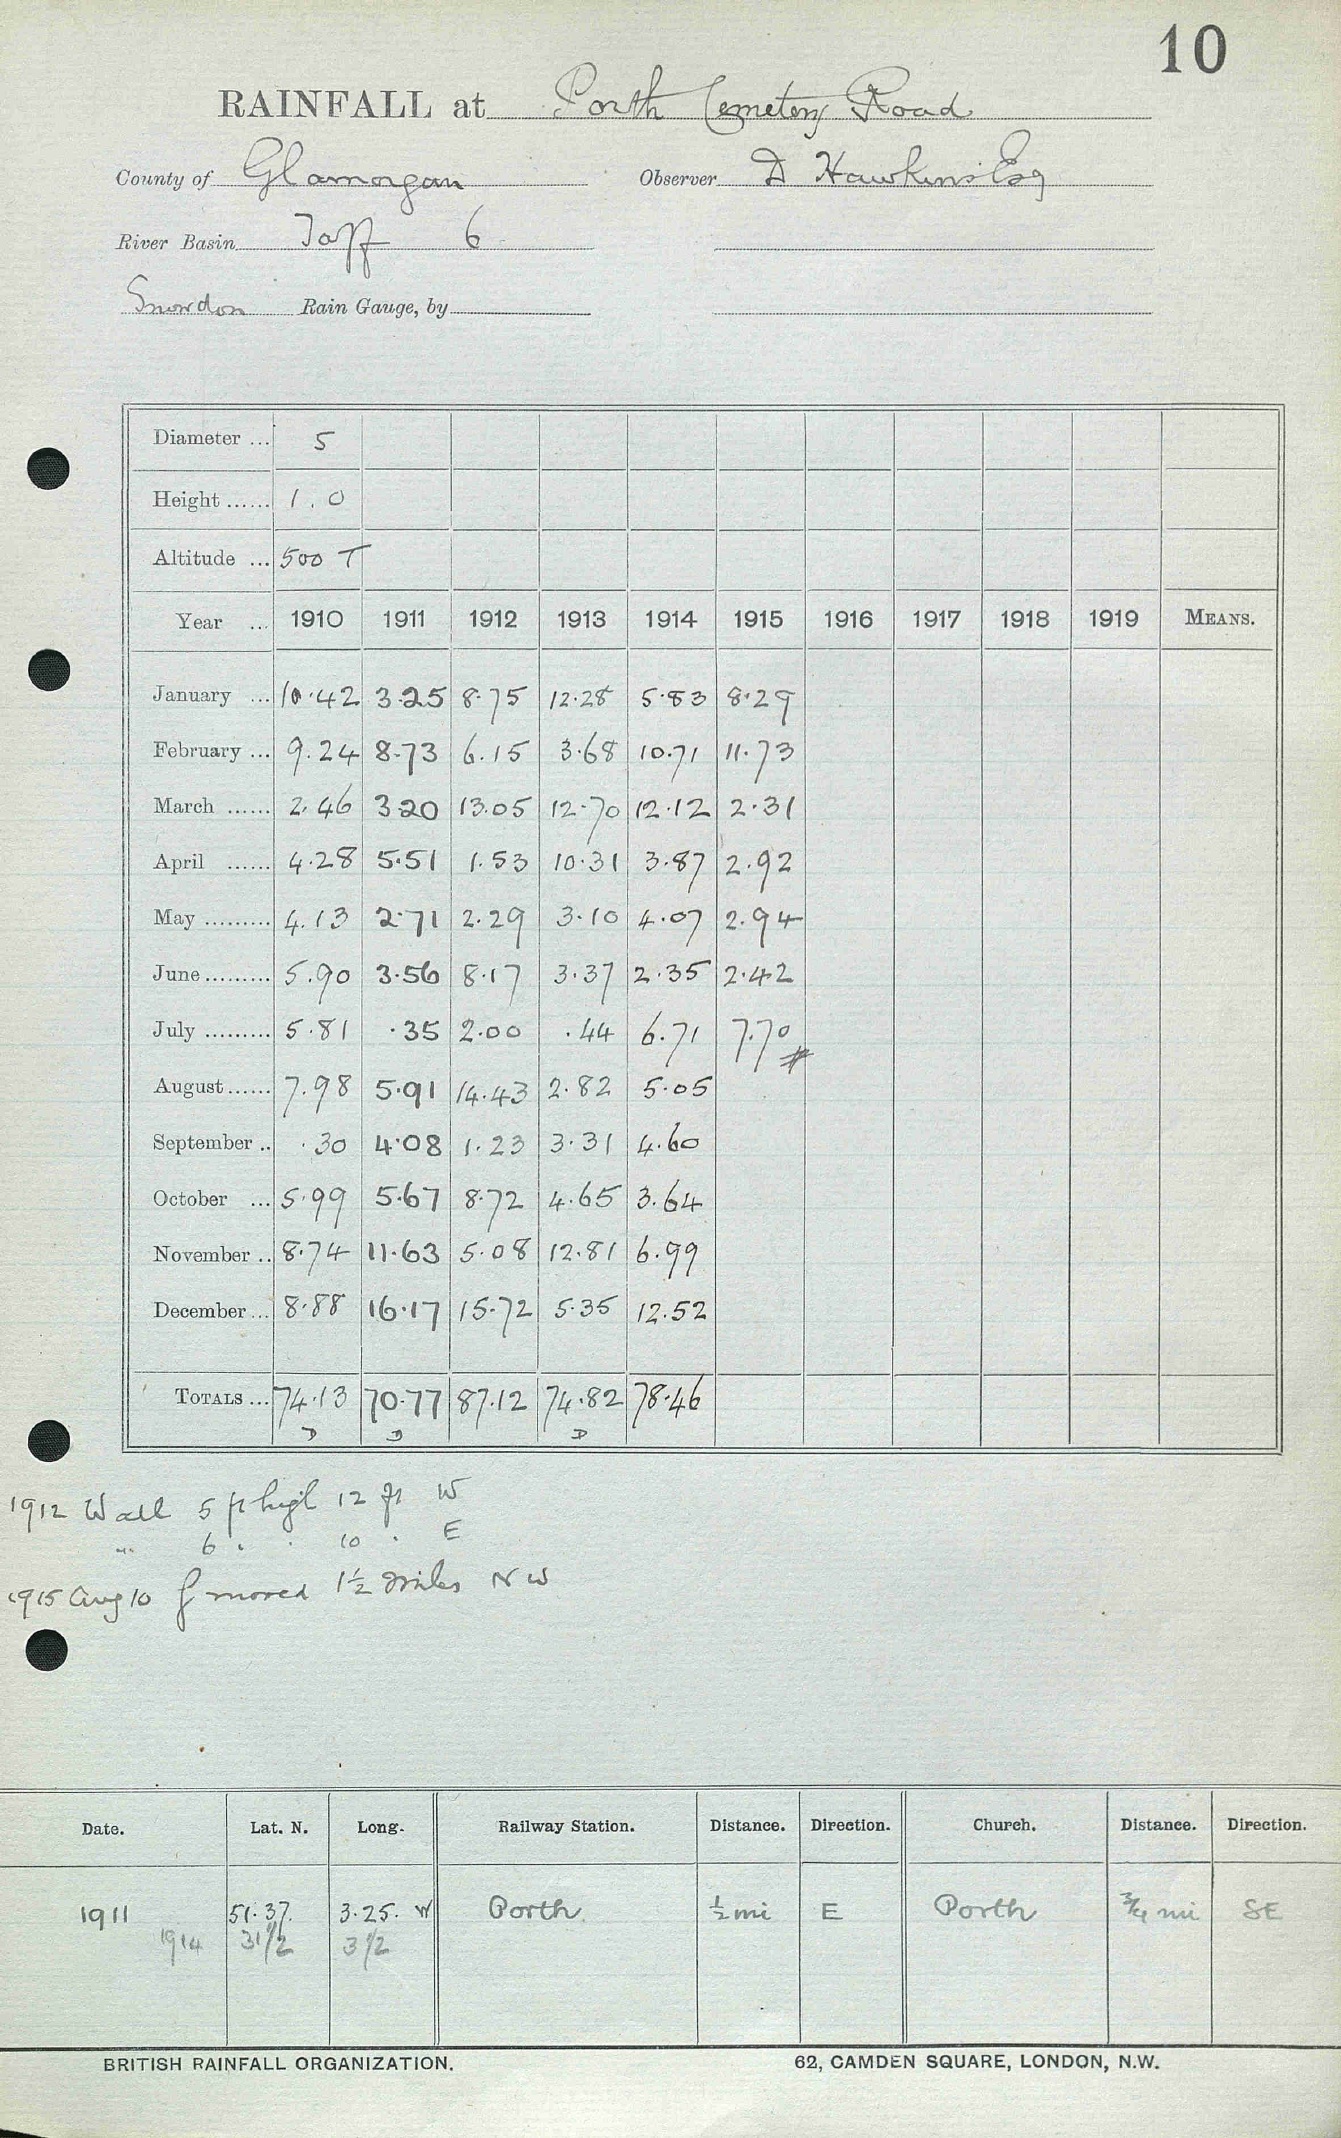 10
RAINFALL at Porth Cemetery Road
County of Glamorgan Observer D Hawkins Esq
River Basin Taff 6
Snowdon Rain Gauge, by
Diameter ... 5
Height ...... 1.0
Altitude ... 500 T
Year ... 1910 1911 1912 1913 1914 1915 1916 1917 1918 1919 MEANS.
January ... 10.42 3.25 8.75 12.28 5.83 8.29
February ... 9.24 8.73 6.15 3.68 10.71 11.73
March ...... 2.46 3.20 13.05 12.70 12.12 2.31
April ...... 4.28 5.51 1.53 10.31 3.87 2.92
May ......... 4.13 2.71 2.29 3.10 4.07 2.94
June ......... 5.90 3.56 8.17 3.37 2.35 2.42
July ......... 5.81 .35 2.00 .44 6.71 7.70 #
August ...... 7.98 5.91 14.43 2.82 5.05
September .. .30 4.08 1.23 3.31 4.60
October ... 5.99 5.67 8.72 4.65 3.64
November .. 8.74 11.63 5.08 12.81 6.99
December ... 8.88 16.17 15.72 5.35 12.52
TOTALS ... 74.13 70.77 87.12 74.82 78.46
D D D
1912 Wall 5 ft high 12 ft W
" 6 . . 10 . E
1915 Aug 10 g moved 1½ miles NW
Date. Lat. N. Long. Railway Station. Distance. Direction. Church. Distance. Direction.
1911 51.37. 3.25. W Porth. ½ mi E Porth ¾ mi SE
1914 31/2 3 1/2
BRITISH RAINFALL ORGANIZATION. 62, CAMDEN SQUARE, LONDON, N.W.